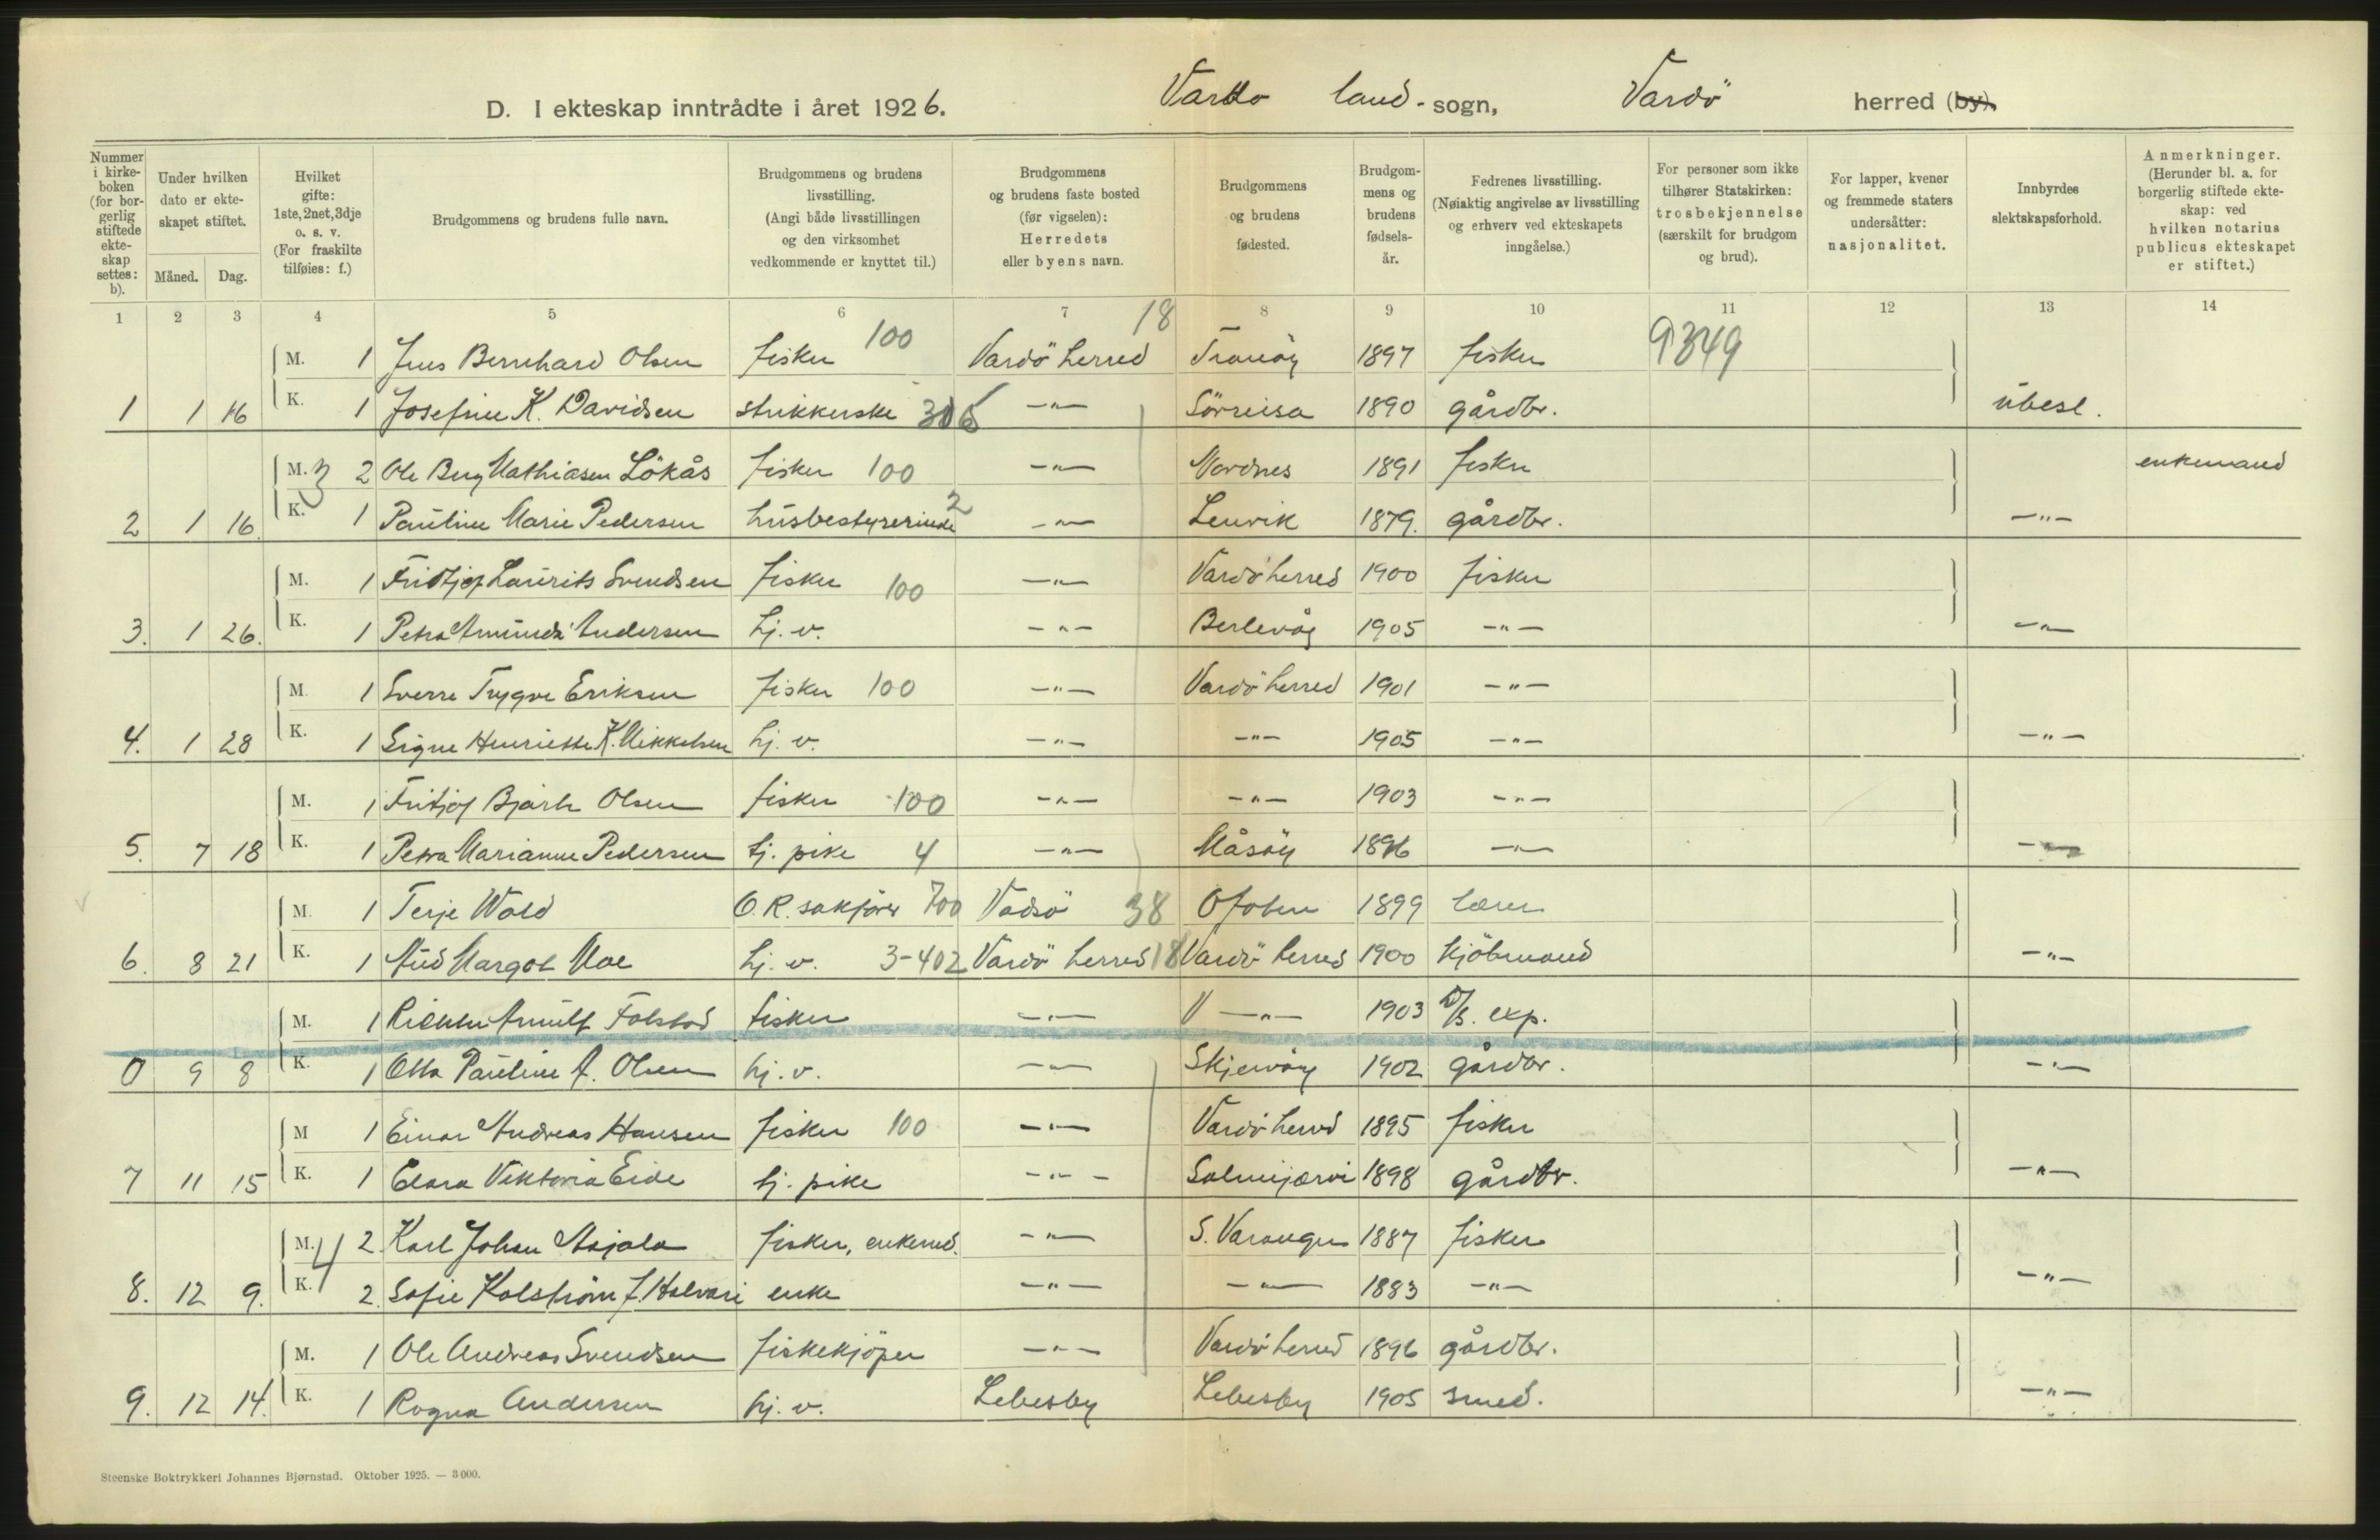 D. I ekteskap inntrådte i året 1926. Vardö land-sogn, Vardö herred (by).
Nummer i kirkeboken (for borgerlig stiftede ekteskap settes: b).
Under hvilken dato er ekteskapet stiftet.
Måned. Dag.
Hvilket gifte: 1ste, 2net, 3dje o. s. v. (For fraskilte tilføies: f.)
Brudgommens og brudens fulle navn.
Brudgommens og brudens livsstilling. (Angi både livsstillingen og den virksomhet vedkommende er knyttet til.)
Brudgommens og brudens faste bosted (før vigselen): Herredets eller byens navn.
Brudgommens og brudens fødested.
Brudgommens og brudens fødselsår.
Fedrenes livsstilling. (Nøiaktig angivelse av livsstilling og erhverv ved ekteskapets inngåelse.)
For personer som ikke tilhører Statskirken: trosbekjennelse (særskilt for brudgom og brud).
For lapper, kvener og fremmede staters undersåtter: nasjonalitet.
Innbyrdes slektskapsforhold.
Anmerkninger. (Herunder bl. a. for borgerlig stiftede ekteskap: ved hvilken notarius publicus ekteskapet er stiftet.)
1 2 3 4 5 6 7 8 9 10 11 12 13 14
M. 1 Jens Bernhard Olsen fisker 100 Vardö herred 18 Tranöy 1897 fisker 9349
1 1 16 K. 1 Josefine K. Davidsen strikkerske 306 -"- Sörreisa 1890 gårdbr. ubesl.
M. 3 2 Ole Berg Mathiasen Lökås fisker 100 -"- Nordnes 1891 fisker enkemand
2 1 16. K. 1 Pauline Marie Pedersen husbestyrerinde 2 -"- Lenvik 1879. gårdbr. -"-
M. 1 Fridtjof Laurits Svendsen fisker 100 -"- Vardö herred 1900 fisker
3. 1 26. K. 1 Petra Amunda Andersen hj. v. -"- Berlevåg 1905 -"- -"-
M. 1 Sverre Trygve Eriksen fisker 100 -"- Vardö herred 1901 -"-
4. 1 28 K. 1 Signe Henriette K. Mikkelsen hj. v. -"- -"- 1905 -"- -"-
M. 1 Fritjof Bjarh Olsen fisker 100 -"- -"- 1903 -"-
5. 7 18 K. 1 Petra Marianne Pedersen tj. pike 4 -"- Måsöy 1896 -"- -"-
M. 1 Terje Wold O.R. sakförer 700 Vadsö 38 Ofoten 1899 lærer
6. 8 21 K. 1 Aud Margot Moe hj. v. 3-402 Vardö herred 18 Vardö herred 1900 kjöbmand -"-
M. 1 Arnulf Folstad fisker -"- V -"- 1903 D/S. exp.
0 9 8 K. 1 Otta Pauline A. Olsen hj. v. -"- Skjervöy 1902 gårdbr. -"-
M 1 Einar Andreas Hansen fisker 100 -"- Vardö herred 1895 fisker
7 11 15 K. 1 Clara Viktoria Eide tj. pike -"- Salmijærvi 1898 gårdbr. -"-
M. 4 2. Karl Johan Aajala fisker, enkemd. -"- S. Varanger 1887 fisker
8. 12 9. K. 2. Sofie Kolström f. Halvari enke -"- -"- 1883 -"- -"-
M. 1 Ole Andreas Svendsen fiskekjöper -"- Vardö herred 1896 gårdbr.
9. 12 14. K. 1 Ragna Andersen hj. v. Lebesby Lebesby 1905 smed. -"-
Steenske Boktrykkeri Johannes Bjørnstad. Oktober 1925. — 3000.